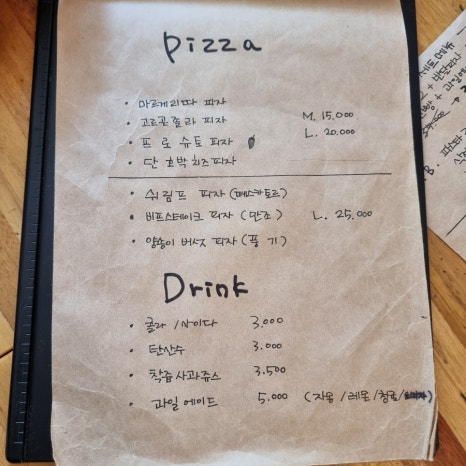 pizza
· 마르게리따 피자
· 고르곤졸라 피자 M. 15,000
· 프로슈토 피자 L. 20,000
· 단호박치즈피자
· 쉬림프 피자 (페스카토르)
· 비프스테이크 피자 (만조) L. 25,000
· 양송이 버섯 피자 (풍기)
Drink
· 콜라 / 사이다 3,000
· 탄산수 3,000
· 착즙사과쥬스 3,500
· 과일에이드 5,000 (자몽 / 레몬 / 청포 /